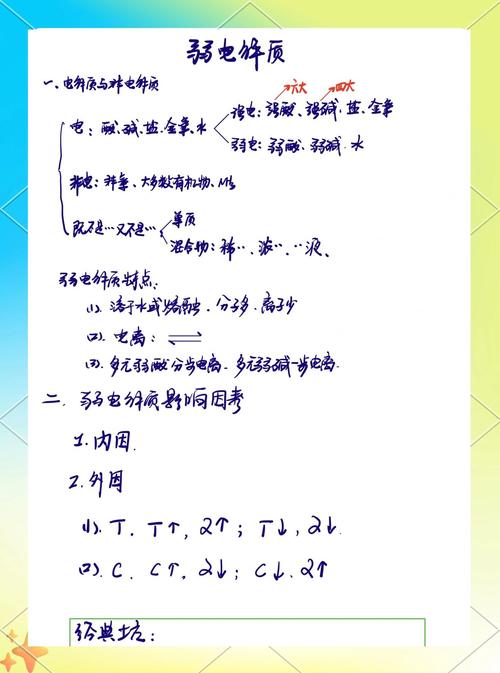 弱电解质
一、电解质与非电解质
六大 四大
电：酸、碱、盐、金氧、水
强电：强酸、强碱、盐、金氧
弱电：弱酸、弱碱、水
非电：非氧、大多数有机物、NH₃
既不是…又不是…
单质
混合物：稀…、浓…、…液、
弱电解质特点：
(1). 溶于水或熔融，分子多、离子少
(2). 电离：⇌
(3). 多元弱酸分步电离、多元弱碱一步电离.
二. 弱电解质影响因素
1. 内因.
2. 外因
(1). T. T↑, α↑; T↓, α↓.
(2). C. C↑, α↓; C↓. α↑
经典坑：